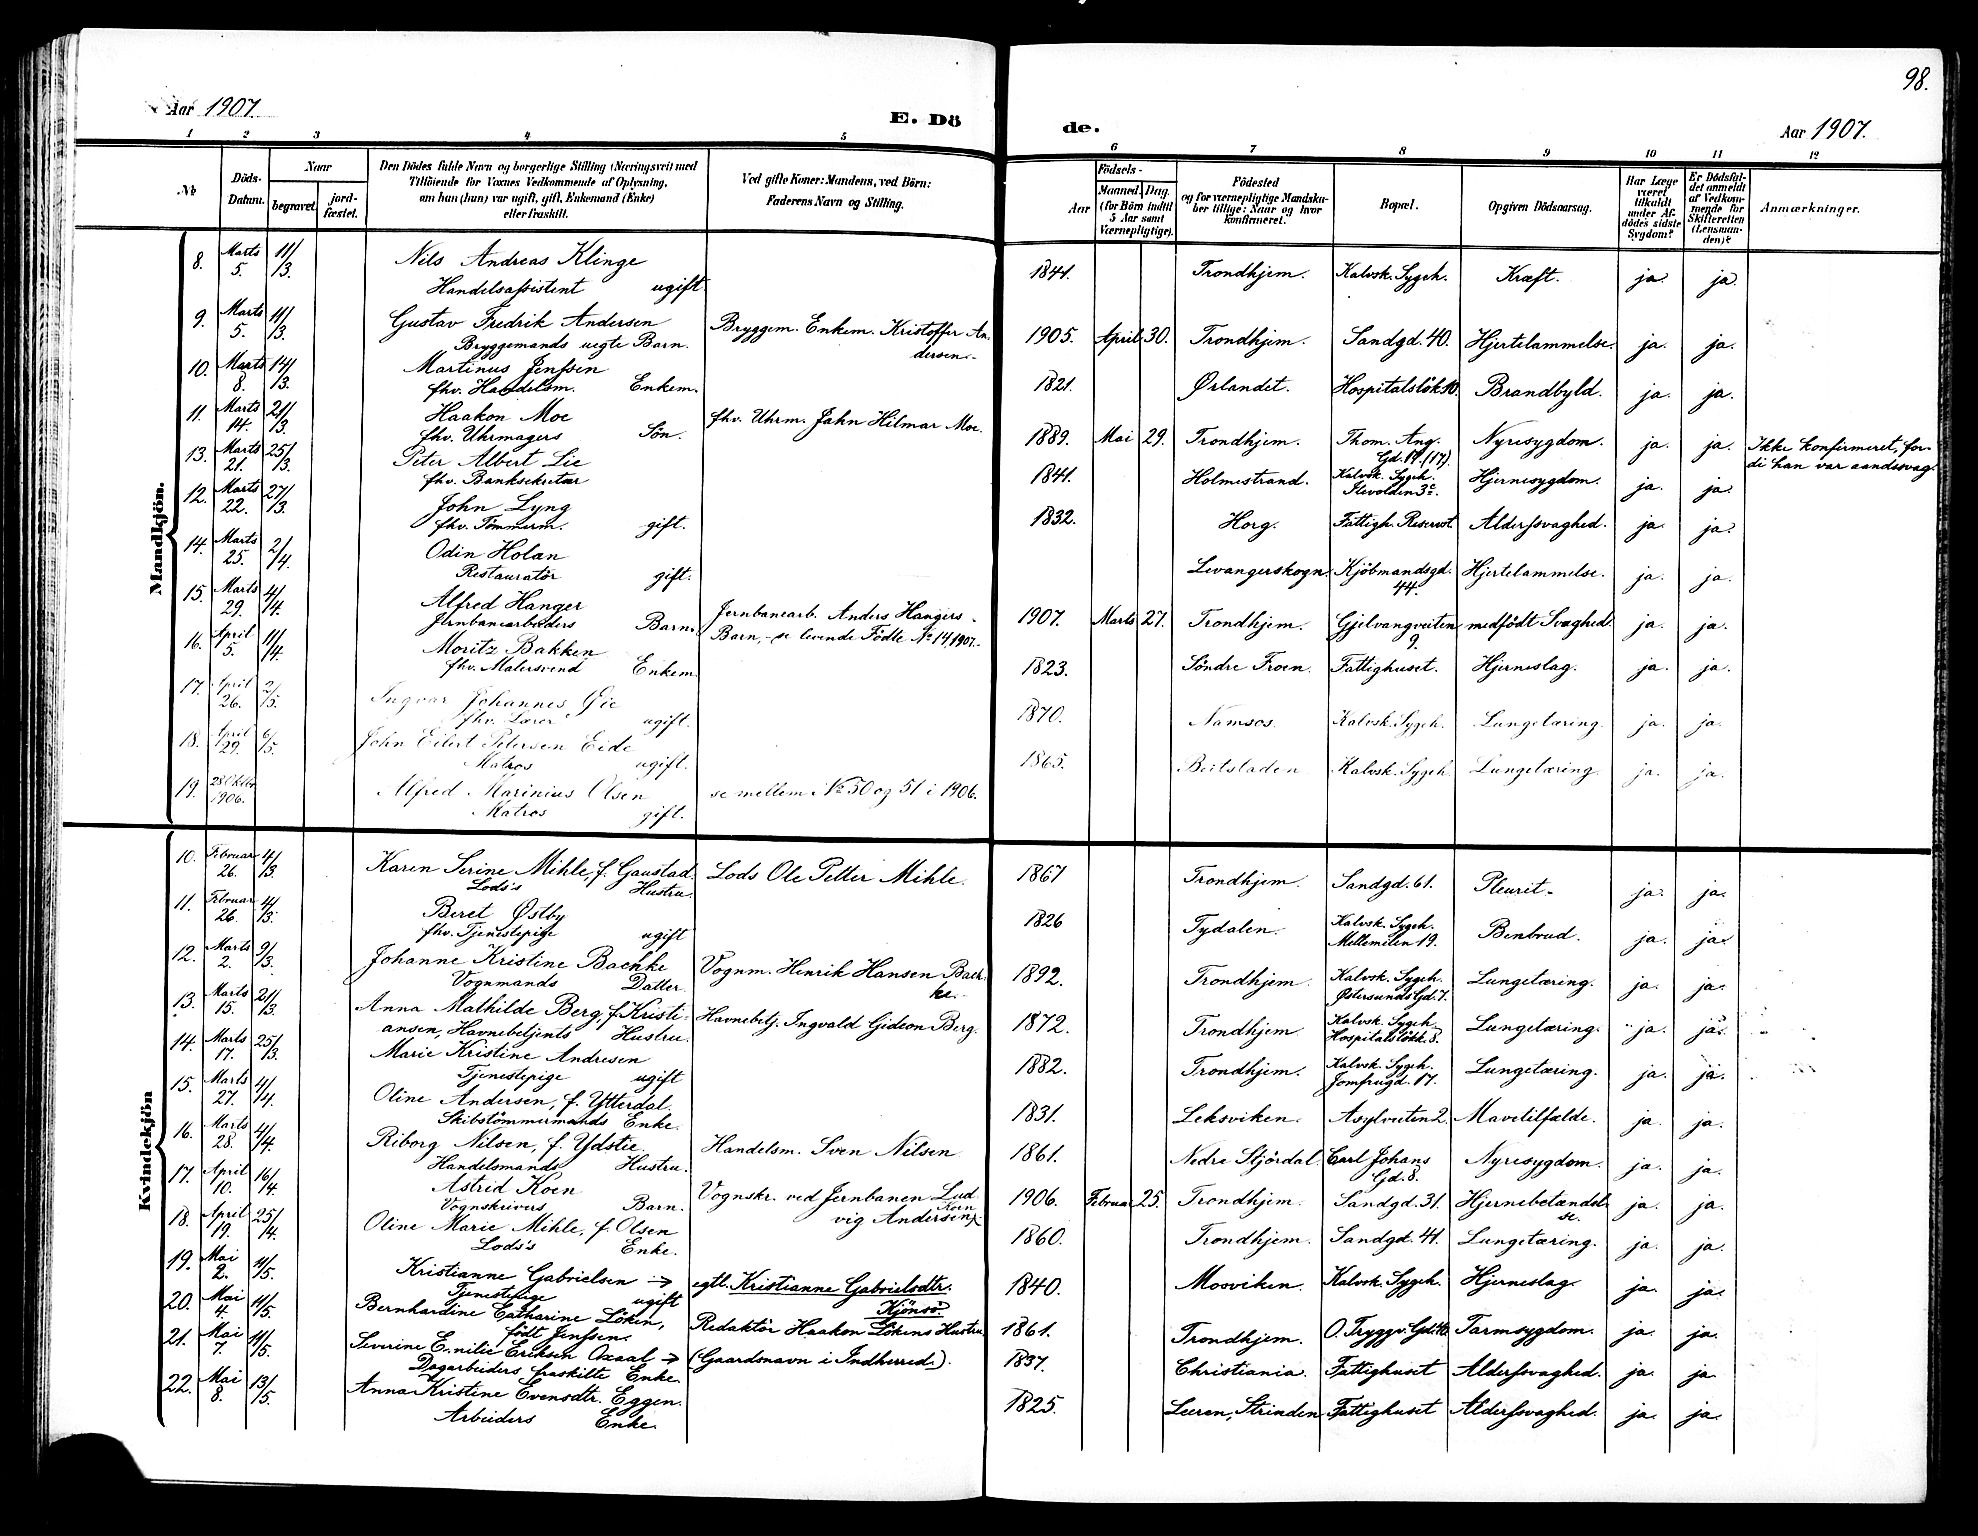 98.
Aar 1907.
E. Dö
de.
Aar 1907.
1 2 3 4 5 6 7 8 9 10 11 12
No
Döds-
Datum.
Naar
begravet.
jord-
fæstet.
Den Dödes fulde Navn og borgerlige Stilling (Næringsvei) med
Tilföiende for Voxnes Vedkommende af Oplysning,
om han (hun) var ugift, gift, Enkemand (Enke)
eller fraskilt.
Ved gifte Koner: Mandens, ved Börn:
Faderens Navn og Stilling.
Födsels-
Aar
Maaned. Dag.
(for Börn indtil
5 Aar samt
Værnepligtige).
Födested
og for værnepligtige Mandska-
ber tillige: Naar og hvor
konfirmeret.
Bopæl.
Opgiven Dödsaarsag.
Har Læge
været
tilkaldt
under Af-
dödes sidste
Sygdom?
Er Dödsfal-
det anmeldt
af Vedkom-
mende for
Skifteretten
(Lensman-
den)?
Anmærkninger.
Mandkjön.
8. Marts 5. 11/3. Nils Andreas Klinge 1841. Trondhjem. Kalvsk. Sygeh. Kræft. ja. ja.
Handelsassistent ugift.
9. Marts 5. 11/3. Gustav Fredrik Andersen Bryggem. Enkem. Kristoffer An- 1905. April 30. Trondhjem. Sandgd. 40. Hjertelammelse. ja. ja.
Bryggemands uegte Barn. dersen.
10. Marts 8. 14/3. Martinus Jenssen 1821. Ørlandet. Hospitalslök. 10. Brandbyld. ja. ja.
fhv. Handelsm. Enkem.
11. Marts 14. 21/3. Haakon Moe fhv. Uhrm. Jahn Hilmar Moe. 1889. Mai 29. Trondhjem. Thom. Ang. Nyresygdom. ja. ja. Ikke konfirmeret, for-
fhv. Uhrmagers Sön. Gd. 17. (17). di han var aandssvag.
13. Marts 21. 25/3. Peter Albert Lie 1841. Holmestrand. Kalvsk. Sygeh. Hjernesygdom. ja. ja.
fhv. Banksekretær Ilevolden 3c.
12. Marts 22. 27/3. John Lyng 1832. Horg. Fattigh. Reservst. Alderssvaghed. ja. ja.
fhv. Tömmerm. gift.
14. Marts 25. 2/4. Odin Holan Levangerskogn. Kjöbmandsgd. Hjertelammelse. ja. ja.
Restauratör gift. 44.
15. Marts 29. 4/4. Alfred Hanger Jernbanearb. Anders Hangers 1907. Marts 27. Trondhjem. Gjelvangveiten medfödt Svaghed ja. ja.
Jernbanearbeiders Barn. Barn, - se levende Födte No 14, 1907. 9.
16. April 5. 11/4. Moritz Bakken 1823. Söndre Froen. Fattighuset. Hjerneslag. ja. ja.
fhv. Malersvend Enkem.
17. April 26. 2/5. Ingvar Johannes Øie 1870. Namsos. Kalvsk. Sygeh. Lungetæring. ja. ja.
fhv. Lærer ugift.
18. April 29. 6/5. John Eilert Petersen Eide 1865. Beitstaden Kalvsk. Sygeh. Lungetæring. ja. ja.
Matros ugift.
19. 28 Oktbr. 1906. Alfred Marinius Olsen se mellem No 50 og 51 i 1906.
Matros gift.
Kvindekjön
10. Februar 26. 4/3. Karen Serine Mihle, f. Gaustad. Lods Ole Petter Mihle. 1867 Trondhjem. Sandgd. 61. Pleurit. ja. ja.
Lods's Hustru.
11. Februar 26. 4/3. Beret Østby 1826 Tydalen. Kalvsk. Sygeh. Benbrud. ja. ja.
fhv. Tjenestepige ugift Mellemilen 19.
12. Marts 2. 9/3. Johanne Kristine Bachke Vognm. Henrik Hansen Bach- 1892. Trondhjem. Kalvsk. Sygeh. Lungetæring. ja. ja.
Vognmands Datter. ke. Østersunds Gd. 7.
13. Marts 15. 21/3. Anna Mathilde Berg, f. Kristi- Havnebetj. Ingvald Gideon Berg. 1872. Trondhjem. Kalvsk. Sygeh. Lungetæring. ja. ja.
ansen, Havnebetjents Hustru. Hospitalslökk. 8.
14. Marts 17. 25/3. Marie Kristine Andresen 1882. Trondhjem. Kalvsk. Sygeh. Lungetæring. ja. ja.
Tjenestepige ugift Jomfrugd. 17.
15. Marts 27. 4/4. Oline Andersen, f. Ytterdal. 1831. Leksviken. Asylveiten 2. Mavetilfælde. ja. ja.
Skibstömmermands Enke.
16. Marts 28. 4/4. Riborg Nilsen, f. Ydstie. Handelsm. Sven Nilsen 1861. Nedre Stjördal. Carl Johans Nyresygdom. ja. ja.
Handelsmands Hustru. Gd. 8.
17. April 10. 16/4. Astrid Koen Vognskr. ved Jernbanen Lud- 1906. Februar 25. Trondhjem. Sandgd. 31. Hjernebetændel- ja. ja.
Vognskrivers Barn. vig Andersen Koen se.
18. April 19. 25/4. Oline Marie Mihle, f. Olsen 1860. Trondhjem. Sandgd. 41. Lungetæring. ja. ja.
Lods's Enke.
19. Mai 2. 11/5. Kristianne Gabrielsen → egtl. Kristianne Gabrielsdtr. 1840. Mosviken. Kalvsk. Sygeh. Hjerneslag. ja. ja.
Tjenestepige ugift Kjönsö.
20. Mai 4. 11/5. Bernhardine Catharine Löken, Redaktör Haakon Lökens Hustru. 1861. Trondhjem. O. Tryggv. Gd. 40 Tarmsygdom. ja. ja.
födt Jenssen.
21. Mai 7. 11/5. Severine Emilie Eriksen Oxaal → (Gaardsnavn i Indherred.). 1837. Christiania. Fattighuset Alderssvaghed. ja. ja
Dagarbeiders fraskilte Enke.
22. Mai 8. 13/5. Anna Kristine Evensdtr. Eggen. 1825. Leeren, Strinden Fattighuset Alderssvaghed. ja. ja.
Arbeiders Enke.